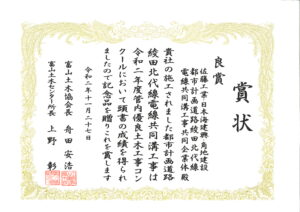 賞状
良賞
佐藤工業・日本海建興・角地建設
都市計画道路綾田北代線
電線共同溝工事共同企業体 殿
貴社の施工されました都市計画道路
綾田北代線電線共同溝工事は
令和二年度管内優良土木工事コン
クールにおいて頭書の成績を得られ
ましたので記念品を贈りこれを賞します
令和二年十一月二十七日
富山土木協会長 舟田安浩
富山土木センター所長 上野彰